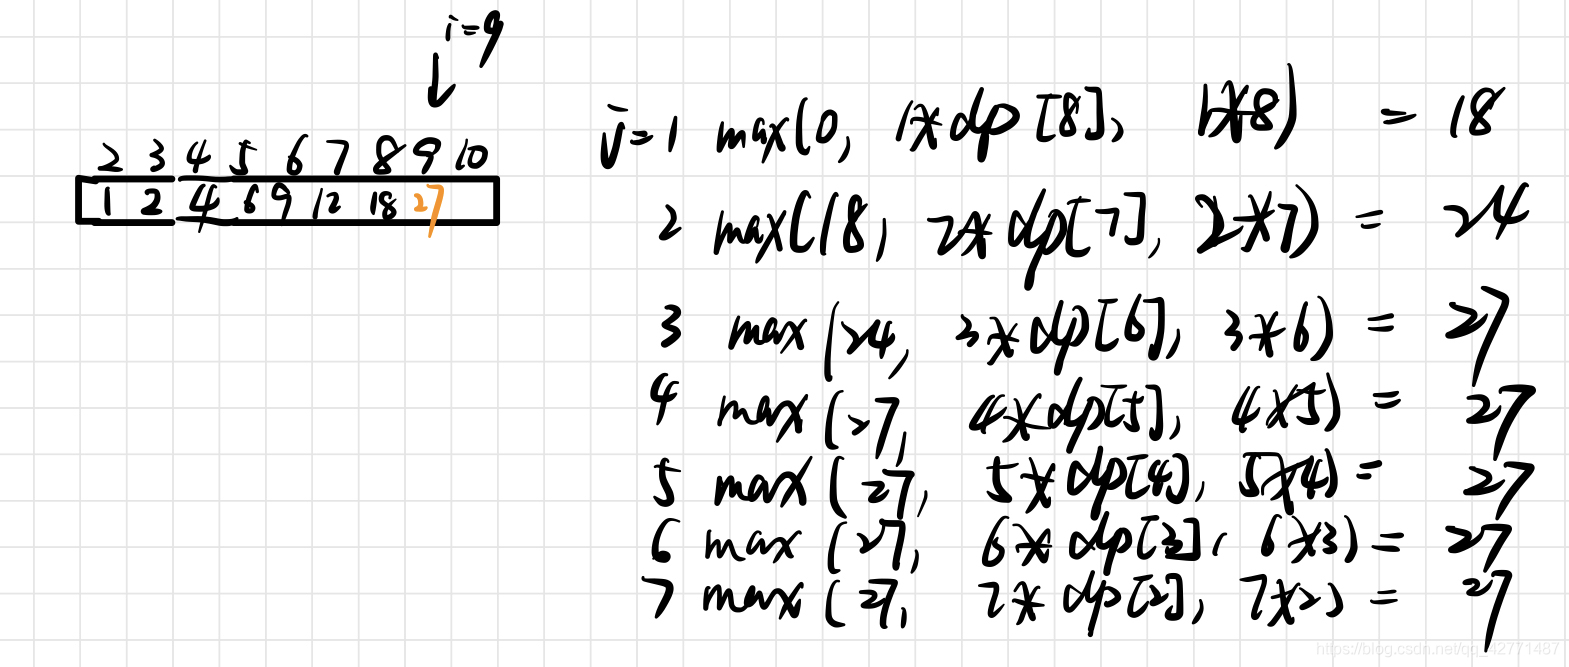 i=9
2 3 4 5 6 7 8 9 10
1 2 4 6 9 12 18 27
j=1 max(0, 1*dp[8], 1*8) = 18
2 max(18, 2*dp[7], 2*7) = 24
3 max(24, 3*dp[6], 3*6) = 27
4 max(27, 4*dp[5], 4*5) = 27
5 max(27, 5*dp[4], 5*4) = 27
6 max(27, 6*dp[3], 6*3) = 27
7 max(27, 7*dp[2], 7*2) = 27
https://blog.csdn.net/qq_42771487